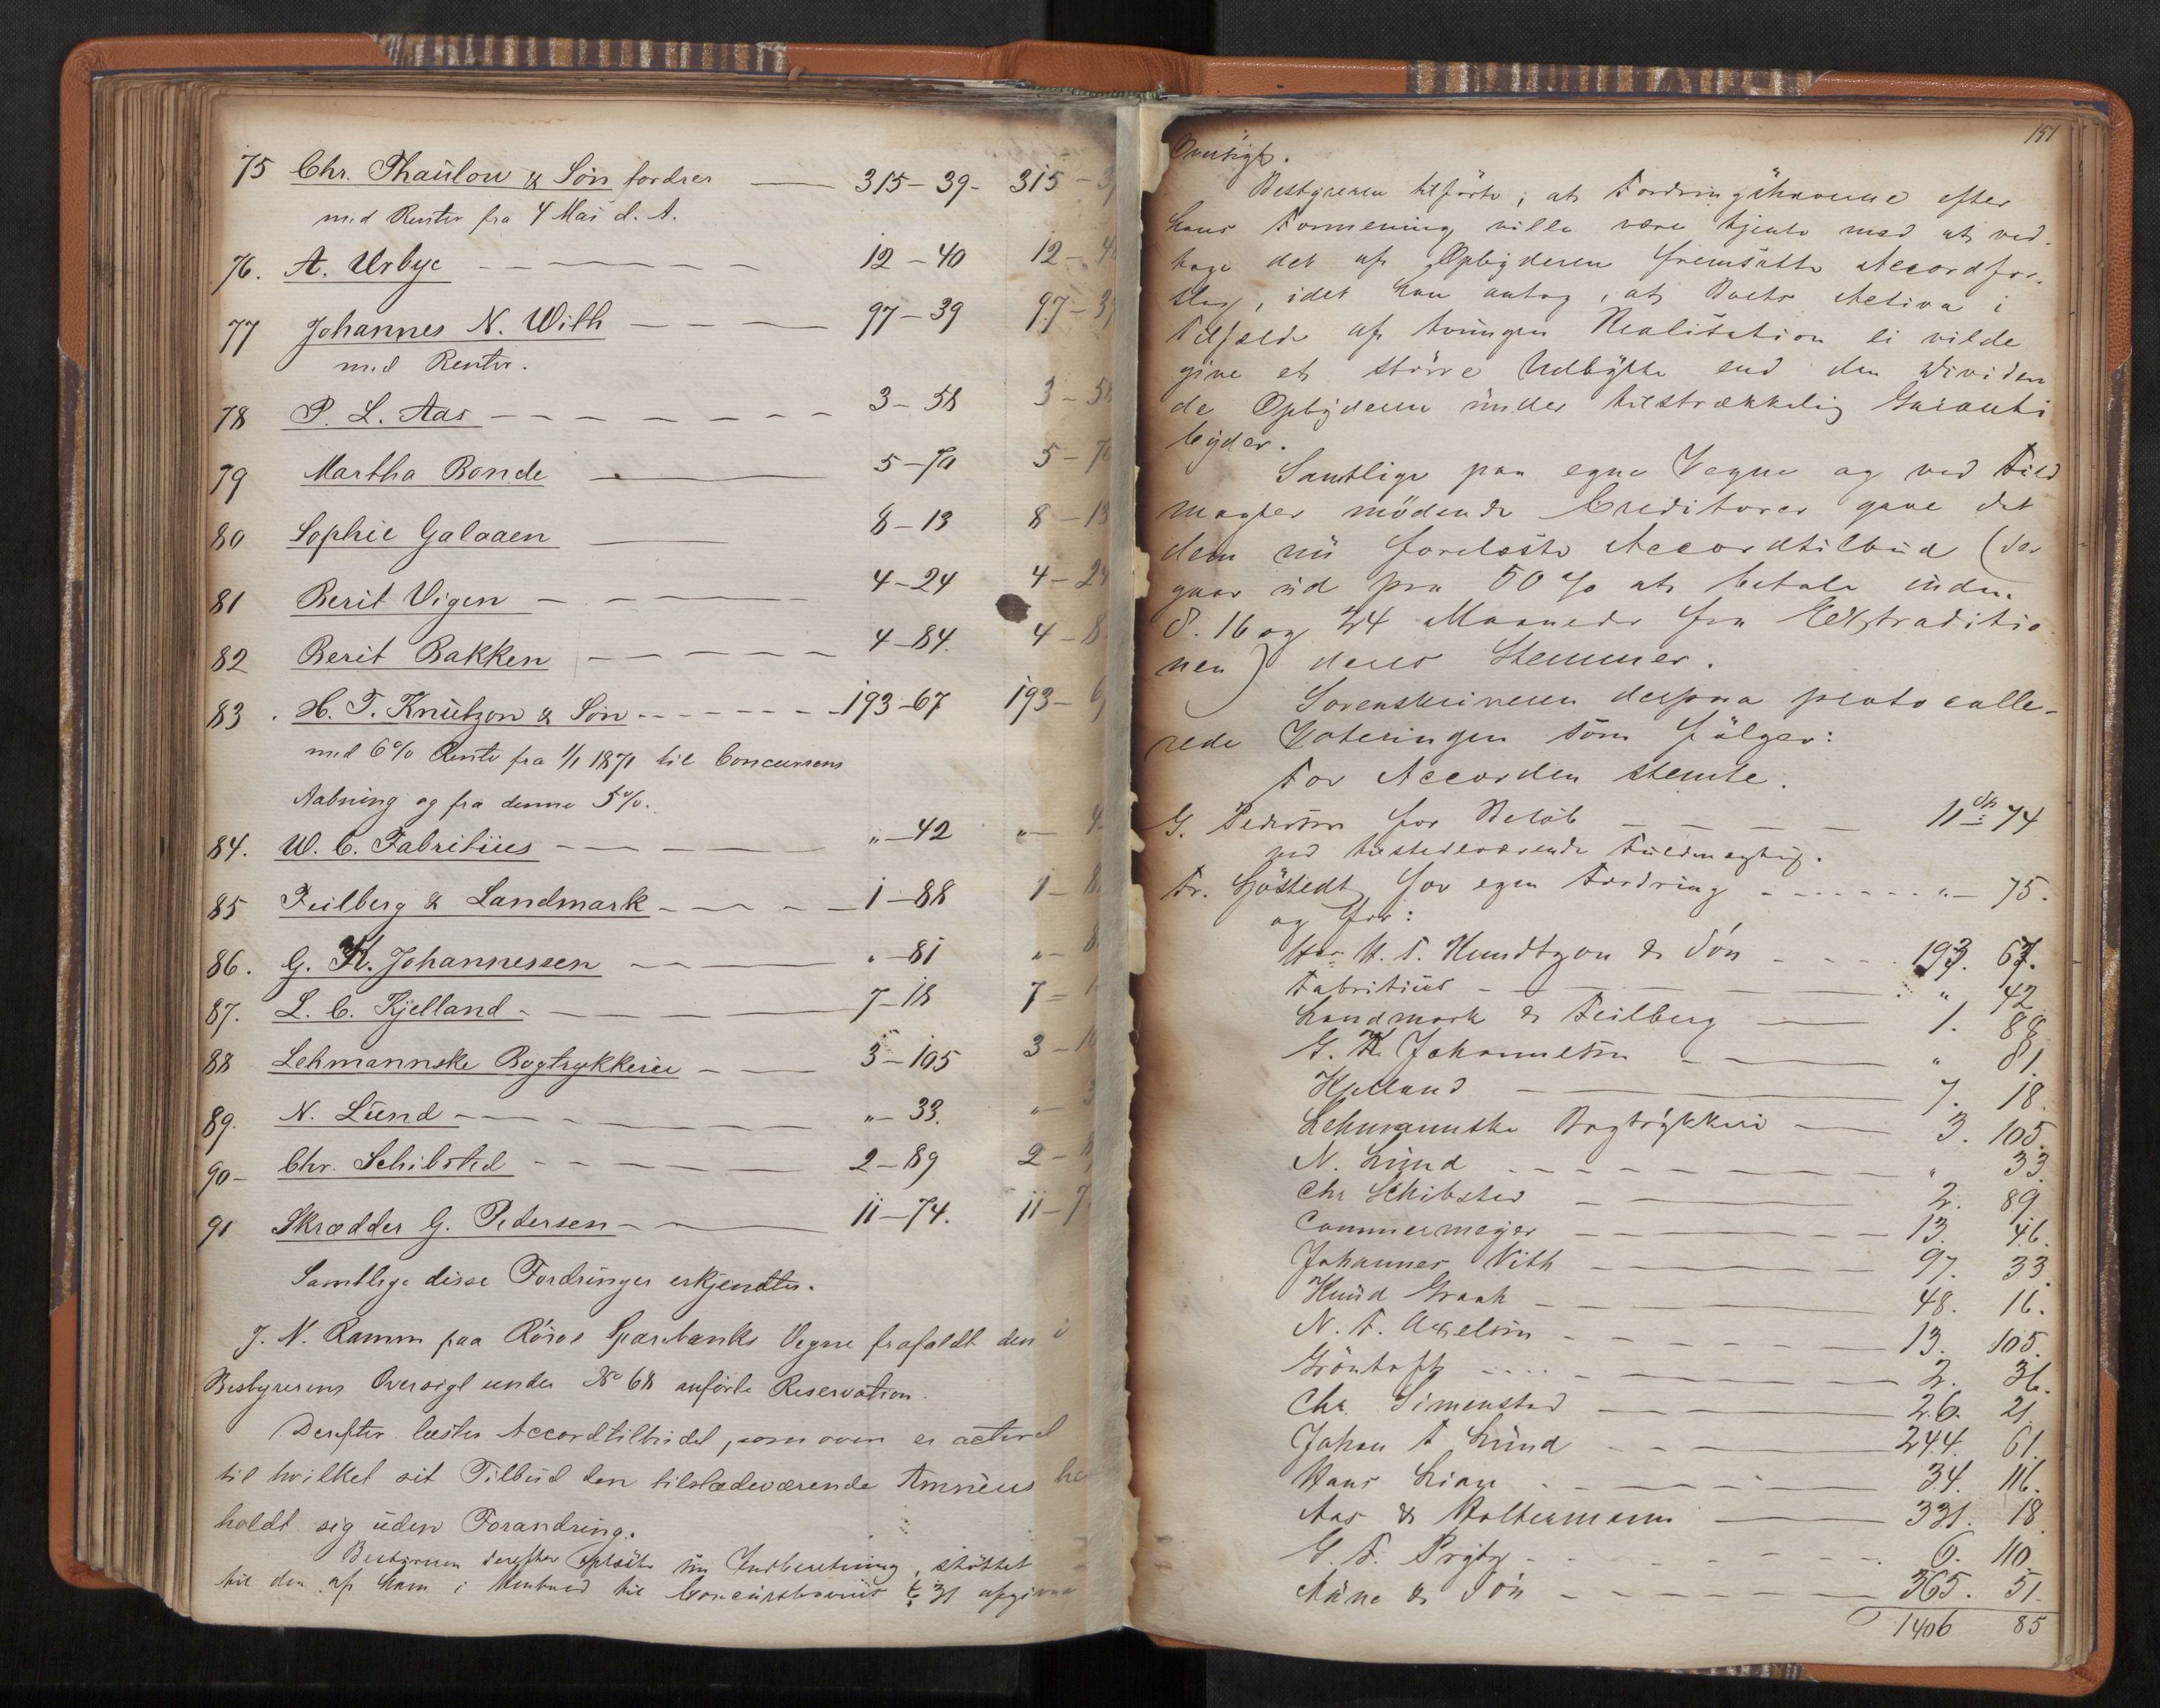 75 Chr. Thaulow & Søn fordrer — 315 - 39 - 315 - 3
med Renter fra 4 Mai d. A.
76. A. Urbye — 12 - 40 12 - 4
77 Johannes N. With — 97 - 39 97 - 3
med Renter.
78 P. L. Aas — 3 - 58 3 - 58
79 Martha Bonde — 5 - 70 5 - 7
80 Sophie Galaaen — 8 - 13 8 - 13
81 Berit Vigen — 4 - 24 4 - 24
82 Berit Bakken — 4 - 84. 4 - 8
83. H. T. Knutzon & Søn — 193 - 67 193 - 6
med 6 % Rente fra 1/1 1871 til Concursens
Aabning og fra denne 5 %.
84. W. C. Fabritius — " - 42 " - 4
85 Feilberg & Landmark — 1 - 88 1 - 8
86. G. K. Johannessen — " - 81 " - 8
87. L. C. Kjelland — 7 - 18 7 - 1
88 Lehmannske Bogtrykkerie — 3 - 105 3 - 10
89. N. Lund — " - 33. " - 3
90 - Chr. Schibsted — 2 - 89 2 - 8
91 Skrædder G. Pedersen — 11 - 74. 11 - 7
Samtlige disse Fordringer erkjendtes.
J. N. Ramm paa Røros Sparebanks Vegne frafaldt den i
Bestyrerens Oversigt under No 68 anførte Reservation.
Derefter læstes Accordtilbudet, som oven er acteret
til hvilket sit Tilbud den tilstedeværende Amnéus he
holdt sig uden Forandring.
Bestyreren derefter oplæste sin Indberetning, støttet
til den af ham i Henhold til Concurslovens § 31 afgivne
151
Oversigt.
Bestyreren tilførte, at Fordringshaverne efter
hans Formening ville være tjente med at ved-
tage det af Opbyderen fremsatte Accordfor-
slag, idet han antog, at Boets Activa i
Tilfælde af tvungen Realisation ei vilde
give et større Udbytte end den Dividen
de Opbyderen under tilstrækkelig Garanti
byder.
Samtlige paa egne Vegne og ved Fuld
magter mødende Creditorer gave det
dem nu forelæste Accordtilbud (der
gaar ud paa 50 % at betale inden
8. 16 og 24 Maaneder fra Extraditio
nen) deres Stemmer.
Sorenskriveren derpaa protocolle-
rede Voteringen som følger:
For Accorden stemte.
G. Pedersen for Beløb — 11 74
ved tilstedeværende Fuldmægtig.
Fr. Sjöstedt for egen Fordring — " - 75.
og for:
H. T. Knudtzon & Søn — 193. 67.
Fabritius — " 42
Landmark & Feilberg — 1. 88
G. K. Johannesen — " 81.
Kjelland — 7. 18.
Lehmannske Bogtrykkeri — 3. 105.
N. Lund — " 33
Chr Schibsted — 2. 89
Cammermeyer — 13. 46.
Johannes With — 97. 33
Knud Graah — 48. 16.
N. F. Axelsen — 13. 105.
Gröntoft — 2. 36.
Chr. Simensted — 26. 21
Johan F Lund — 244. 61.
Hans Lian — 34. 116.
Aas & Haltermann — 331. 18
G. F. Prytz — 6. 110
Aune & Søn — 365. 51.
1406 85